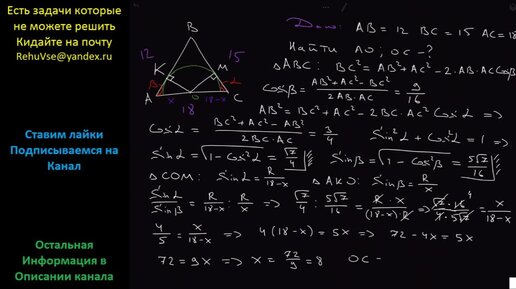 Есть задачи которые
не можете решить
Кидайте на почту
RehuVse@yandex.ru
Ставим лайки
Подписываемся на
Канал
Остальная
Информация в
Описании канала
B
12
15
K
M
β
α
A
x
O
18-x
C
18
Дано: AB = 12 BC = 15 AC = 18
Найти AO; OC - ?
△ABC: BC² = AB² + AC² - 2·AB·AC Cosβ
Cosβ = (AB² + AC² - BC²)/(2AB·AC) = 9/16
AB² = BC² + AC² - 2BC·AC Cosα ⇒
Cosα = (BC² + AC² - AB²)/(2BC·AC) = 3/4 Sin²α + Cos²α = 1 ⇒
Sinα = √(1 - Cos²α) = √7/4 Sinβ = √(1 - Cos²β) = 5√7/16
△COM: Sinα = R/(18-x) △AKO: Sinβ = R/x
Sinα/Sinβ = R/(18-x) : R/x ⇒ √7/4 : 5√7/16 = R·x/((18-x)·R) ⇒ √7·16 4/(4·5√7) = x/(18-x)
4/5 = x/(18-x) ⇒ 4(18-x) = 5x ⇒ 72 - 4x = 5x
72 = 9x ⇒ x = 72/9 = 8 OC -